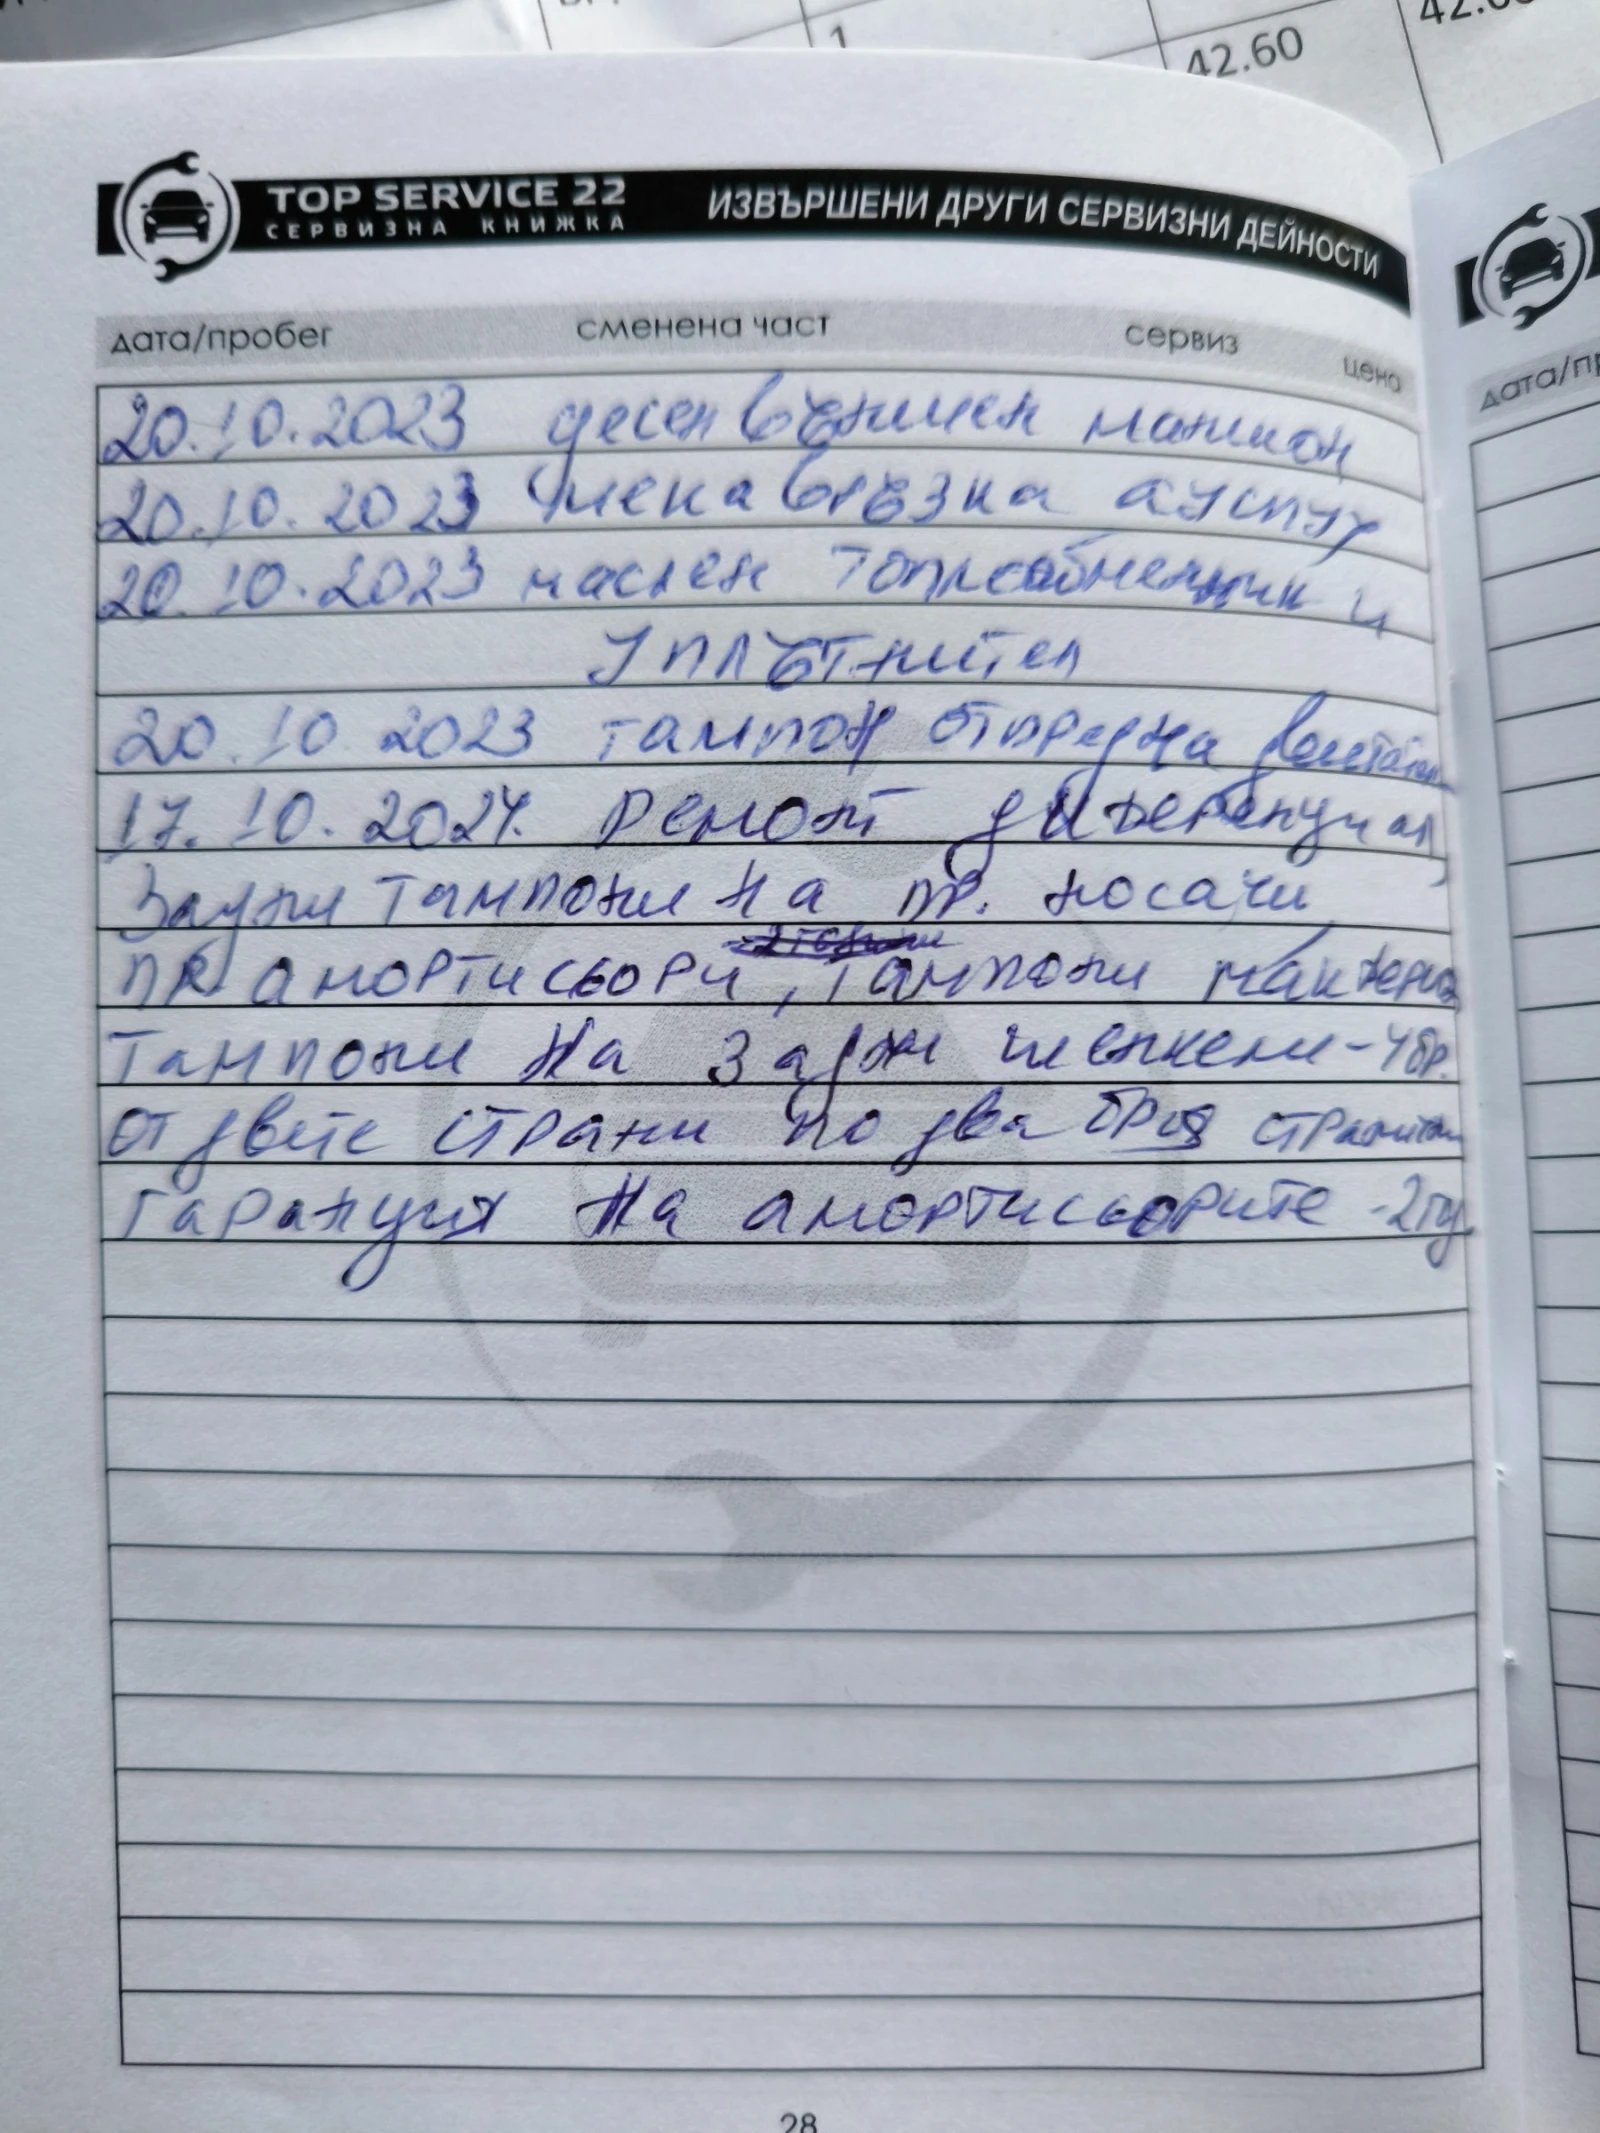 1
42.60
TOP SERVICE 22
СЕРВИЗНА КНИЖКА
ИЗВЪРШЕНИ ДРУГИ СЕРВИЗНИ ДЕЙНОСТИ
дата/пробег сменена част сервиз цена
20.10.2023 десен външен маншон
20.10.2023 мека връзка ауспух
20.10.2023 маслен топлообменник и
уплътнител
20.10.2023 тампон отпред на
17.10.2024. ремонт диференциал,
Задни тампони на пр. носачи
пр. амортисьори, тампони
тампони на задни шенкели - 4бр.
от двете страни по два броя
гаранция на амортисьорите - 2год.
28
дата/пр